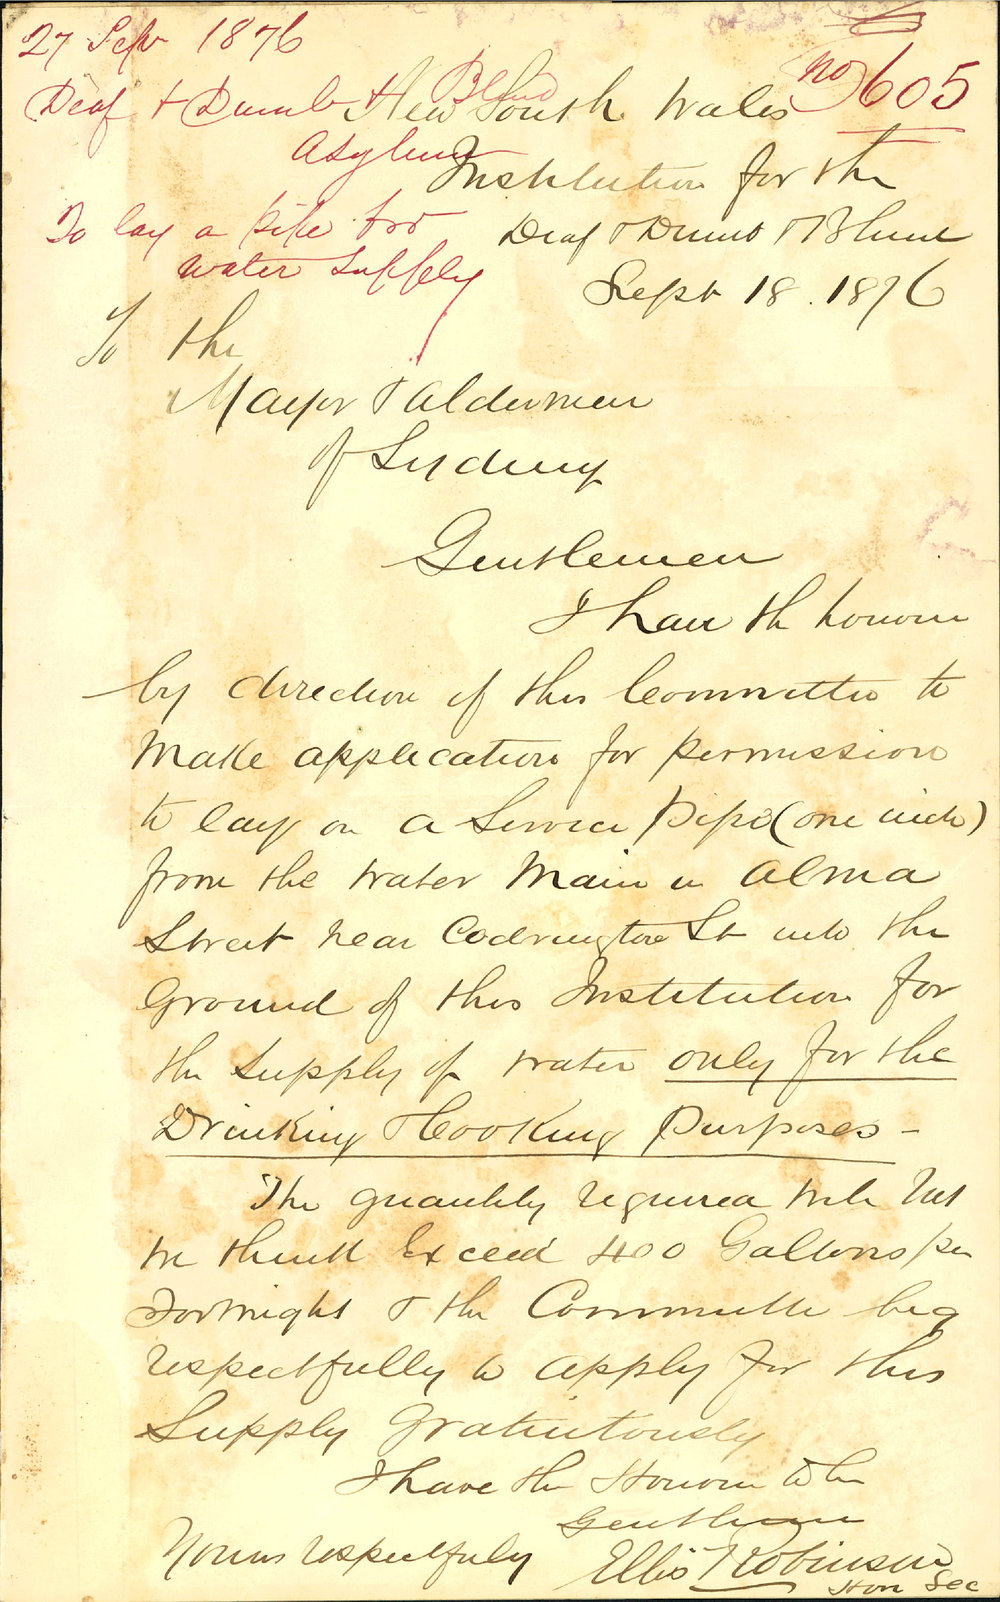 27 Sep 1876
No 605
Deaf & Dumb & Blind
Asylum
To lay a pipe for
water supply
New South Wales
Institution for the
Deaf & Dumb & Blind
Sept 18. 1876
To the
Mayor & Aldermen
of Sydney
Gentlemen
I have the honour
by direction of this Committee to
make application for permission
to lay on a Service Pipe (one inch)
from the Water Main in Alma
Street near Codrington St into the
Ground of this Institution for
the Supply of water only for the
Drinking & Cooking Purposes -
The quantity required will not
we think Exceed 400 Gallons per
Fortnight & the Committee beg
respectfully to apply for this
Supply Gratuitously
I have the Honour to be
Gentlemen
Yours respectfuly
Ellis Robinson
Hon Sec